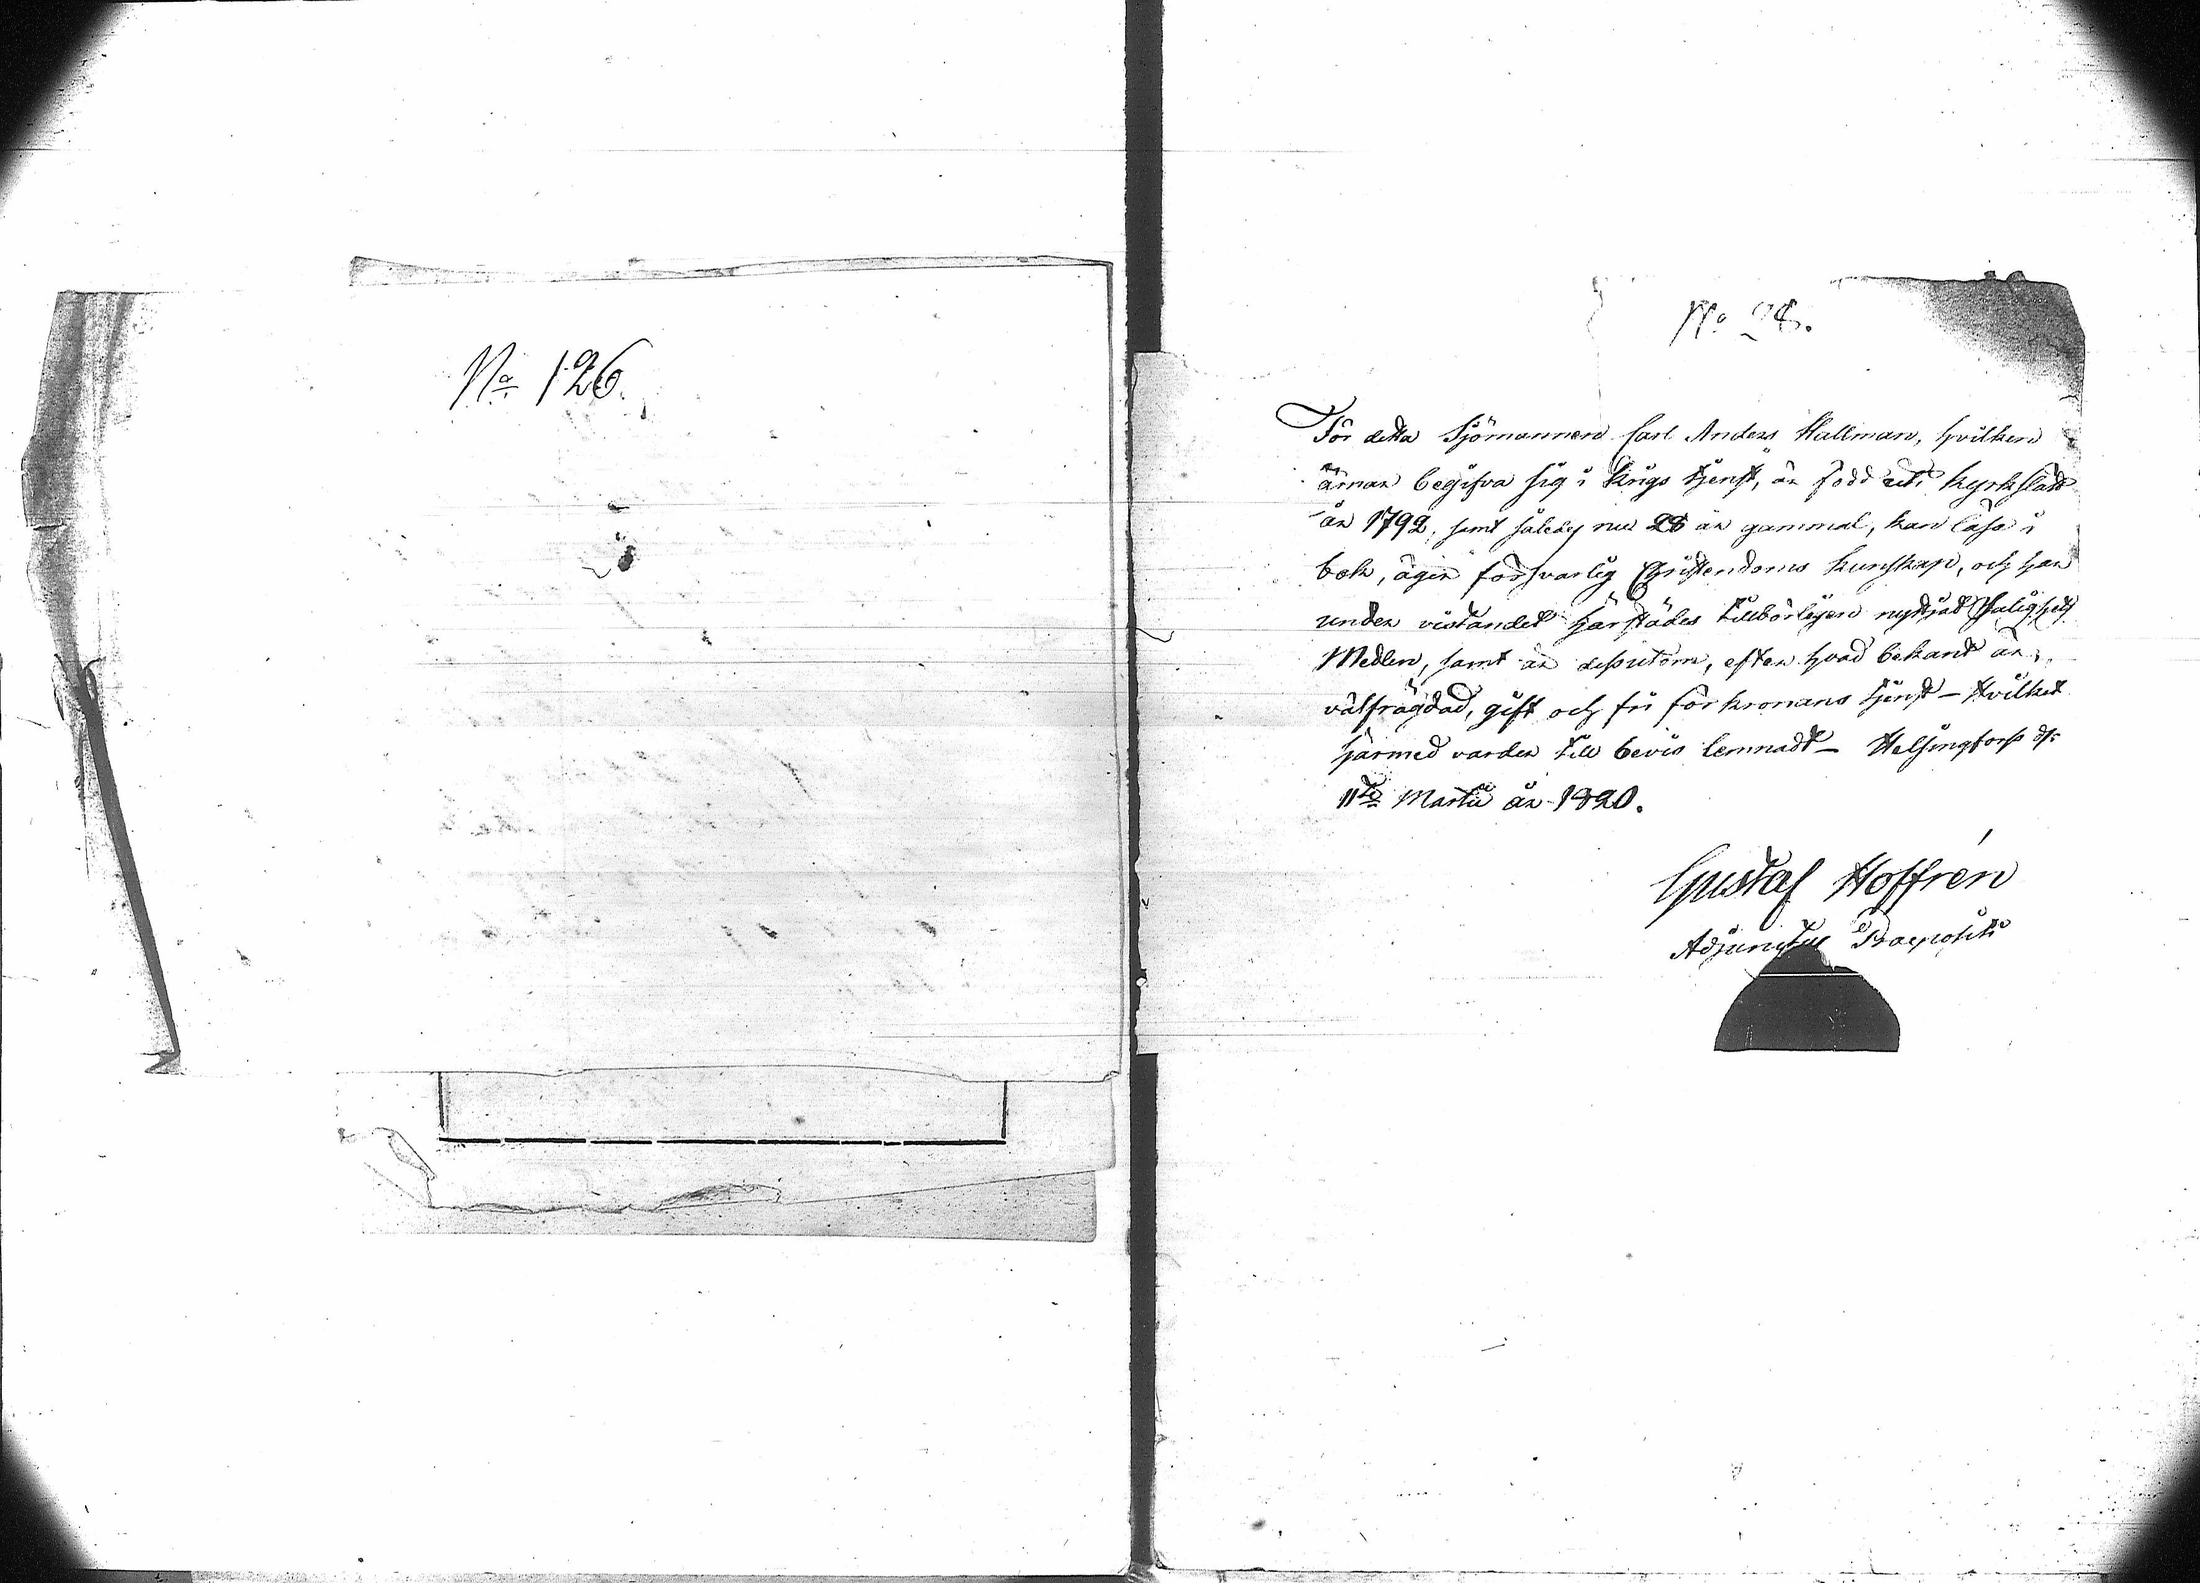 No 126.
No 28.
För detta Sjömannen Carl Anders Hallman, hvilken
ärnar begifva sig i Krigs tjenst, är född uti Kyrkslätt
år 1792, samt således nu 28 år gammal, kan läsa i
bok, äger försvarlig Christendoms kunskap, och har
under vistandet härstädes tillbörligen nyttjat Salighets
Medlen, samt är dessutom, efter hvad bekant är,
välfrägdad, gift och fri för kronans tjenst – Hvilket
härmed varder till bevis lemnadt – Helsingfors d.
11te Martii år 1820.
Gustaf Hoffrén
Adjunctus Præpositi